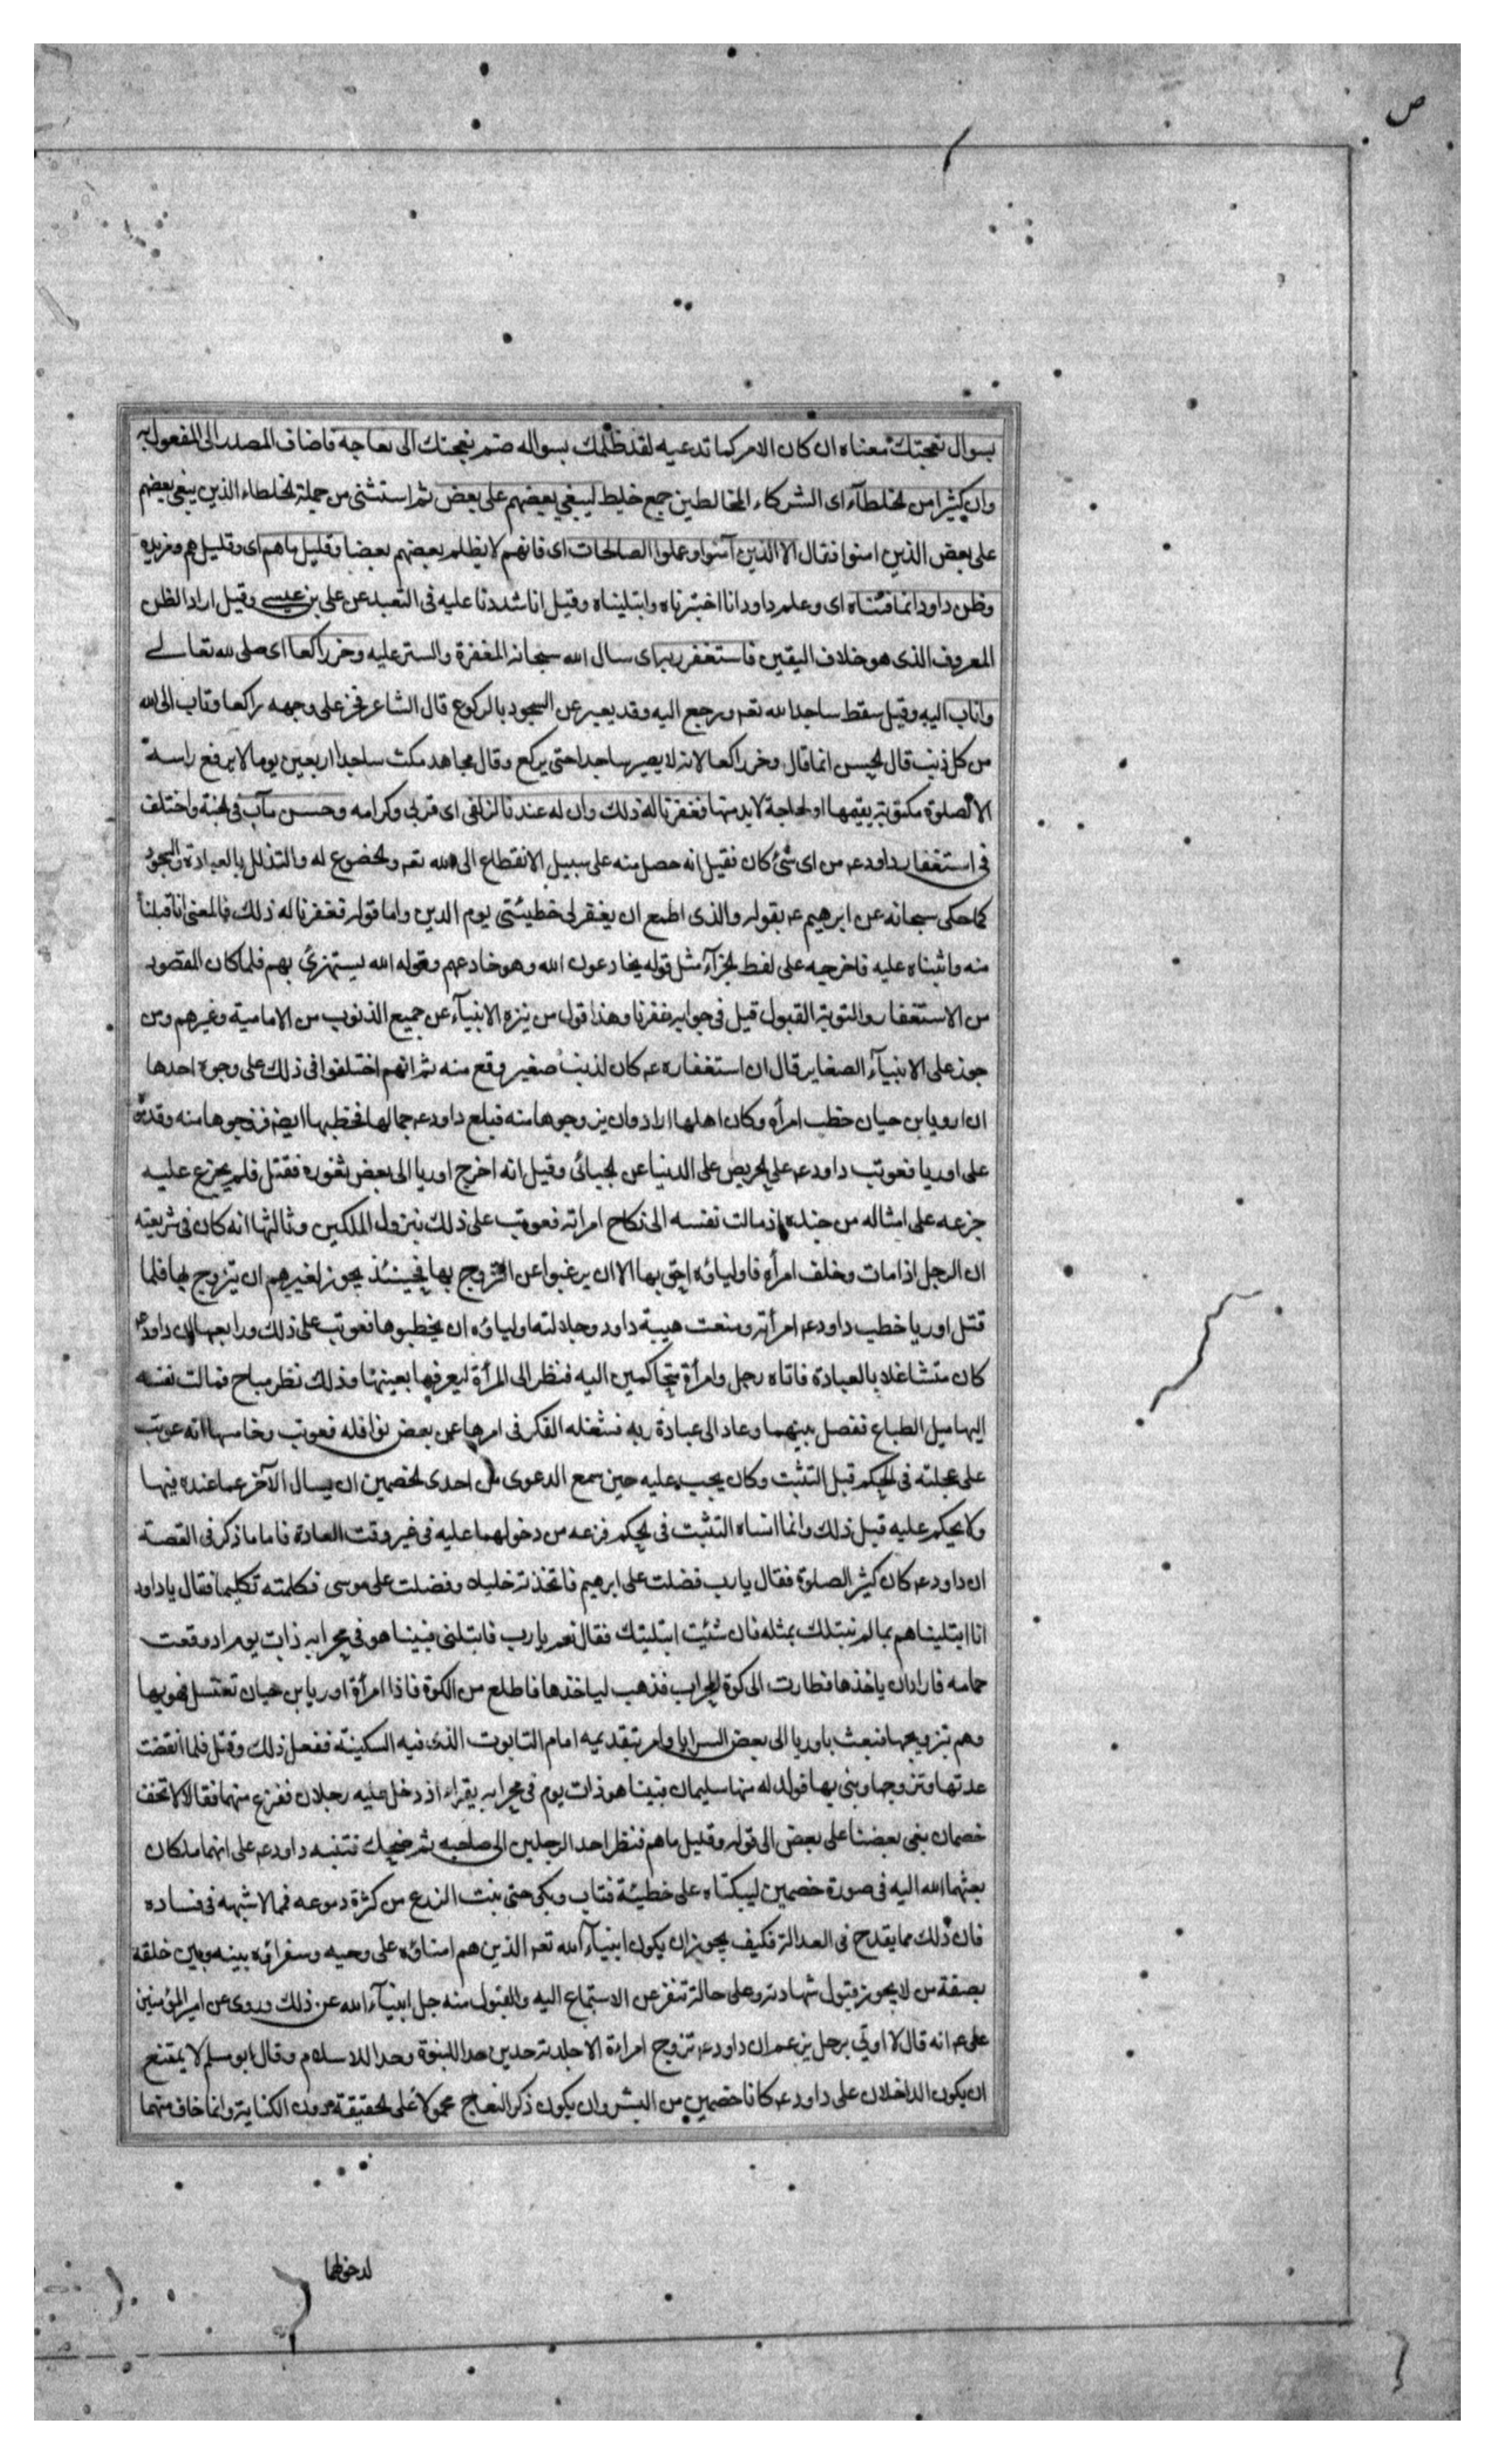 ص
بسوال نعجتك معناه ان كان الامر كما تدعيه لقد ظلمك بسواله ضم نعجتك الى نعاجه فاضاف المصدر الى المفعول به
وان كثيرا من الخلطآء اى الشركاء المخالطين جمع خليط ليبغي بعضهم على بعض ثم استثنى من جملة الخلطاء الذين يبغى بعضهم
على بعض الذين امنوا فقال الا الذين آمنوا وعملوا الصالحات اى فانهم لا يظلم بعضهم بعضا وقليل ما هم اى وقليل هم وما مزيدة
وظن داود انما فتناه اى وعلم داود انا اختبرناه وابتليناه وقيل انا شددنا عليه فى التعبد عن على بن عيسى وقيل اراد الظن
المعروف الذى هو خلاف اليقين فاستغفر ربه اى سال الله سبحانه المغفرة والستر عليه وخر راكعا اى صلى لله تعالى
واناب اليه وقيل سقط ساجدا لله تعه ورجع اليه وقد يعبر عن السجود بالركوع قال الشاعر فخر على وجهه راكعا وتاب الى الله
من كل ذنب قال الحسن انما قال وخر راكعا لانه لا يصير ساجدا حتى يركع وقال مجاهد مكث ساجدا اربعين يوما لا يرفع راسه
الا لصلوة مكتوبة يقيمها او لحاجة لابد منها فغفرنا له ذلك وان له عندنا لزلفى اى قربى وكرامه وحسن مآب فى الجنة واختلف
فى استغفار داودعه من اى شئ كان فقيل انه حصل منه على سبيل الانقطاع الى الله تعه والخضوع له والتذلل بالعبادة والسجود
كما حكى سبحانه عن ابرهيم عه بقوله والذى اطمع ان يغفر لى خطيئتى يوم الدين واما قوله فغفرنا له ذلك فالمعنى انا قبلنا
منه واثبناه عليه فاخرجه على لفظ الجزآء مثل قوله يخادعون الله وهو خادعهم وقوله الله يستهزئ بهم فلما كان المقصود
من الاستغفار والتوبة القبول قيل فى جوابه غفرنا وهذا قول من ينزه الانبيآء عن جميع الذنوب من الامامية وغيرهم ومن
جوز على الانبيآء الصغاير قال ان استغفاره عه كان لذنب صغير وقع منه ثم انهم اختلفوا فى ذلك على وجوه احدها
ان اوريا بن حيان خطب امرأه وكان اهلها ارادوا ان يزوجوها منه فبلغ داودعه جمالها فخطبها ايضه فزوجوها منه وقدموه
على اوريا فعوتب داودعه على الحرص على الدنيا عن الجبائى وقيل انه اخرج اوريا الى بعض ثغوره فقتل فلم يجزع عليه
جزعه على امثاله من جنده اذ مالت نفسه الى نكاح امراته فعوتب على ذلك بنزول الملكين وثالثها انه كان فى شريعته
ان الرجل اذا مات وخلف امرأه فاولياؤه احق بها الا ان يرغبوا عن التزوج بها فحينئذ يجوز لغيرهم ان يتزوج بها فلما
قتل اوريا خطب داودعه امرأته ومنعت هيبة داود وجلالته اولياؤه ان يخطبوها فعوتب على ذلك ورابعها ان داودعه
كان متشاغلا بالعبادة فاتاه رجل وامرأة يتحاكمين اليه فنظر الى المرأة ليعرفها بعينها وذلك نظر مباح فمالت نفسه
اليها ميل الطباع ففصل بينهما وعاد الى عبادة ربه فشغله الفكر فى امرها عن بعض نوافله فعوتب وخامسها انه عوتب
على عجلته فى الحكم قبل التثبت وكان يجب عليه حين سمع الدعوى من احدى الخصمين ان يسال الآخر عما عنده فيها
ولا يحكم عليه قبل ذلك وانما انساه التثبت فى الحكم فزعه من دخولهما عليه فى غير وقت العادة فاما ما ذكر فى القصة
ان داودعه كان كثير الصلوة فقال يا رب فضلت على ابرهيم فاتخذته خليلا وفضلت على موسى فكلمته تكليما فقال يا داود
انا ابتليناهم بما لم نبتلك بمثله فان شئت ابتليتك فقال نعم يا رب فابتلنى فبينا هو فى محرابه ذات يوم اذ وقعت
حمامه فاراد ان ياخذها فطارت الى كوة المحراب فذهب لياخذها فاطلع من الكوة فاذا امرأة اوريا بن حيان تغتسل فهويها
وهم بتزويجها فبعث باوريا الى بعض السرايا وامر بتقديمه امام التابوت الذى فيه السكينة ففعل ذلك وقتل فلما انقضت
عدتها وتزوجها وبنى بها فولد له منها سليمان فبينا هو ذات يوم فى محرابه يقراء اذ دخل عليه رجلان ففزع منهما فقالا لا تخف
خصمان بغى بعضنا على بعض الى قوله وقليل ما هم فنظر احد الرجلين الى صاحبه ثم ضحك فتنبه داودعه على انهما ملكان
بعثهما الله اليه فى صورة خصمين ليبكتاه على خطيئة فتاب وبكى حتى نبت الزرع من كثرة دموعه فمما لا شبهه فى فساده
فان ذلك مما يقدح فى العدالة فكيف يجوز ان يكون انبيآء الله تعه الذين هم امناؤه على وحيه وسفراؤه بينه وبين خلقه
بصفة من لا يجوز قبول شهادته وعلى حالة تنفر عن الاستماع اليه والقبول منه جل انبيآء الله عن ذلك وروى عن امير المؤمنين
على عه انه قال لا اوتى برجل يزعم ان داودعه تزوج امراءة الا جلدته حدين حدا للنبوة وحدا للاسلام وقال ابو مسلم لا يمتنع
ان يكون الداخلان على داودعه كانا خصمين من البشر وان يكون ذكر النعاج محمولا على الحقيقة دون الكناية وانما خاف منهما
لدخولهما